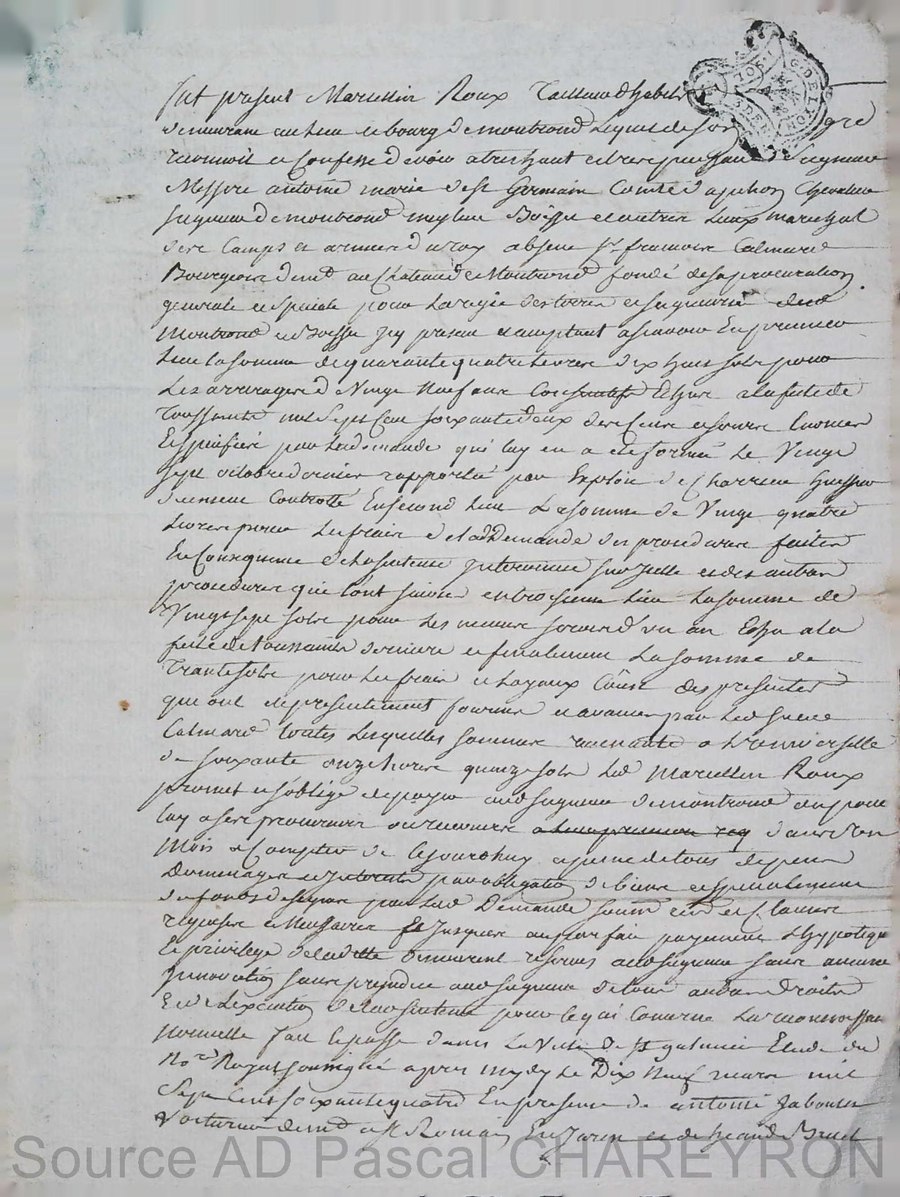 fut present Marcellin Roux Tailleur d'habits
demeurant au lieu et bourg de montrond lequel de son gré
reconnoit et Confesse devoir a tres haut et tres puissant seigneur
Messire antoine marie de st Germain Comte d'apchon Chevalier
seigneur de montrond meylieu Boisset et autres Lieux marechal
des Camps et armées du roy absent sr. francois Calmard
Bourgeois demt au Chateau de Montrond fondé de sa procuration
generale et speciale pour la regie des terres et seigneurie dud
Montrond et Boisset icy present et acceptant a scavoir En premier
lieu la somme de quarante quatre livres dix huit sols pour
Les arrerages de Vingt Neuf ans Echus a la feste de
Toussaints mil sept Cent soixante deux des Cens et
Especifiés par la demande qui luy en a été formée Le Vingt
sept octobre dernier rapportée par Exploit de Charreu huissier
Controllé En second lieu La somme de Vingt quatre
Livres pour Les frais de lad Demande des procedures faites
En Consequence de la sentence intervenue sur icelle et des autres
procedures qui l'ont suivie en troisieme lieu La somme de
Vingt sept sols pour Les memes servis d'un an Echu a la
feste de Toussaints derniere et finalement La somme de
Trante sols pour Les frais et loyaux Couts des presentes
qui ont été presentement fournis et avancés par Led sieur
Calmard toutes lesquelles sommes revenants a L'universelle
de soixante onze livres quinze sols Led Marcellin Roux
promet et s'oblige de payer aud seigneur de montrond ou pour
luy a ses procureur ou receveur a leur premiere req dans d'un
Mois a Compter de Cejourdhuy a peine de tous depens
Dommages et interests par obligation de biens et specialement
des fonds designés par lad Demande soumn ren et Clauses
requises et necessaires Et jusques au parfait payement L'hypoteque
Et privilege de la dette demeurent reservés aud seigneur sans aucune
innovation sans prejudice aud seigneur de tous autres Droits
Et de L'execution de lad sentence pour ce qui concerne La reconnoissance
nouvelle fait et passé dans La Ville de st galmier Etude du
Nore Royal soussigné apres midy Le Dix Neuf mars mil
Sept Cent soixante quatre En presence de antoine
Voiturier demt a st Romain En Jarez et de
G. DE LYON
Source AD Pascal CHAREYRON